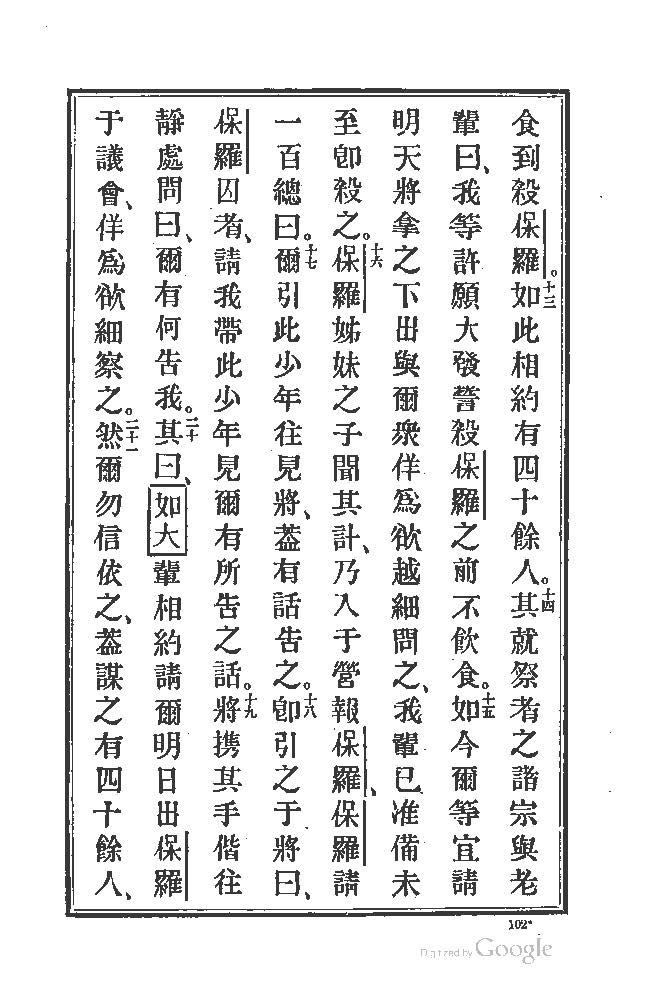 食到殺保羅。十三如此相約有四十餘人。十四其就祭者之諧宗與老
輩曰、我等許願大發誓殺保羅之前不飲食。十五如今爾等宜請
明天將拿之下出與爾衆佯爲欲越細問之、我輩已准備未
至卽殺之。十六保羅姊妹之子聞其計、乃入于營報保羅、保羅請
一百總曰。十七爾引此少年往見將、葢有話告之。十八卽引之于將曰、
保羅囚者、請我帶此少年見爾有所告之話。十九將携其手偕往
靜處問曰、爾有何告我。二十其曰、如大輩相約請爾明日出保羅
于議會、佯爲欲細察之。二十一然爾勿信依之、葢謀之有四十餘人、
102*
Digitized by Google